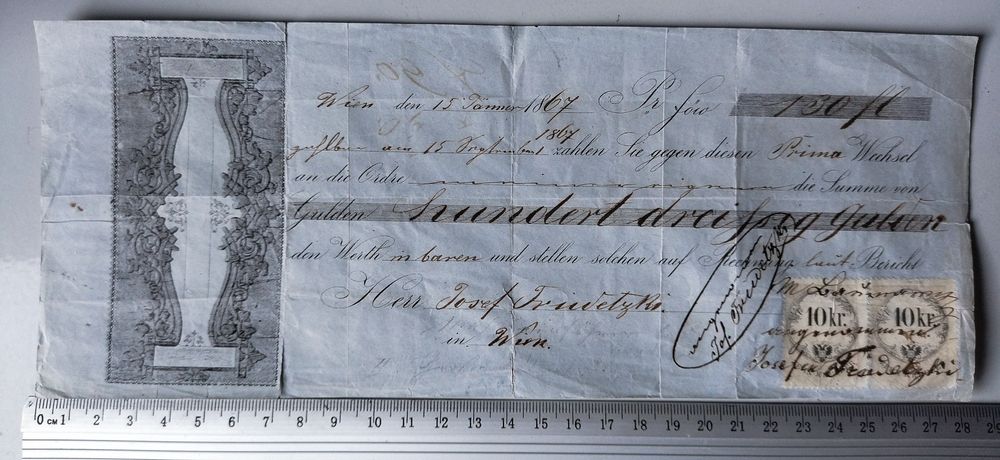 Wien den 15 Jänner 1867 Pr. 130 fl
zahlbar am 15 September 1867 zahlen Sie gegen diesen Prima Wechsel
an die Ordre die Summe von
Gulden hundert dreissig Gulden
den Werth in baren und stellen solchen auf Rechnung laut Bericht
Herr Josef Friedetzki
in Wien.
angenommen
Jos. Friedetzki
10 kr. 10 kr.
angenommen
Josefa Friedetzki
0 CM 1 2 3 4 5 6 7 8 9 10 11 12 13 14 15 16 17 18 19 20 21 22 23 24 25 26 27 28 29